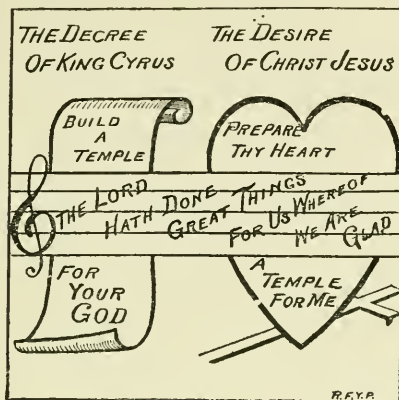 THE DECREE
OF KING CYRUS
THE DESIRE
OF CHRIST JESUS
BUILD
A
TEMPLE
PREPARE
THY HEART
THE LORD
HATH DONE
GREAT THINGS
FOR US WHEREOF
WE ARE
GLAD
FOR
YOUR
GOD
A
TEMPLE
FOR ME
R.F.Y.P.